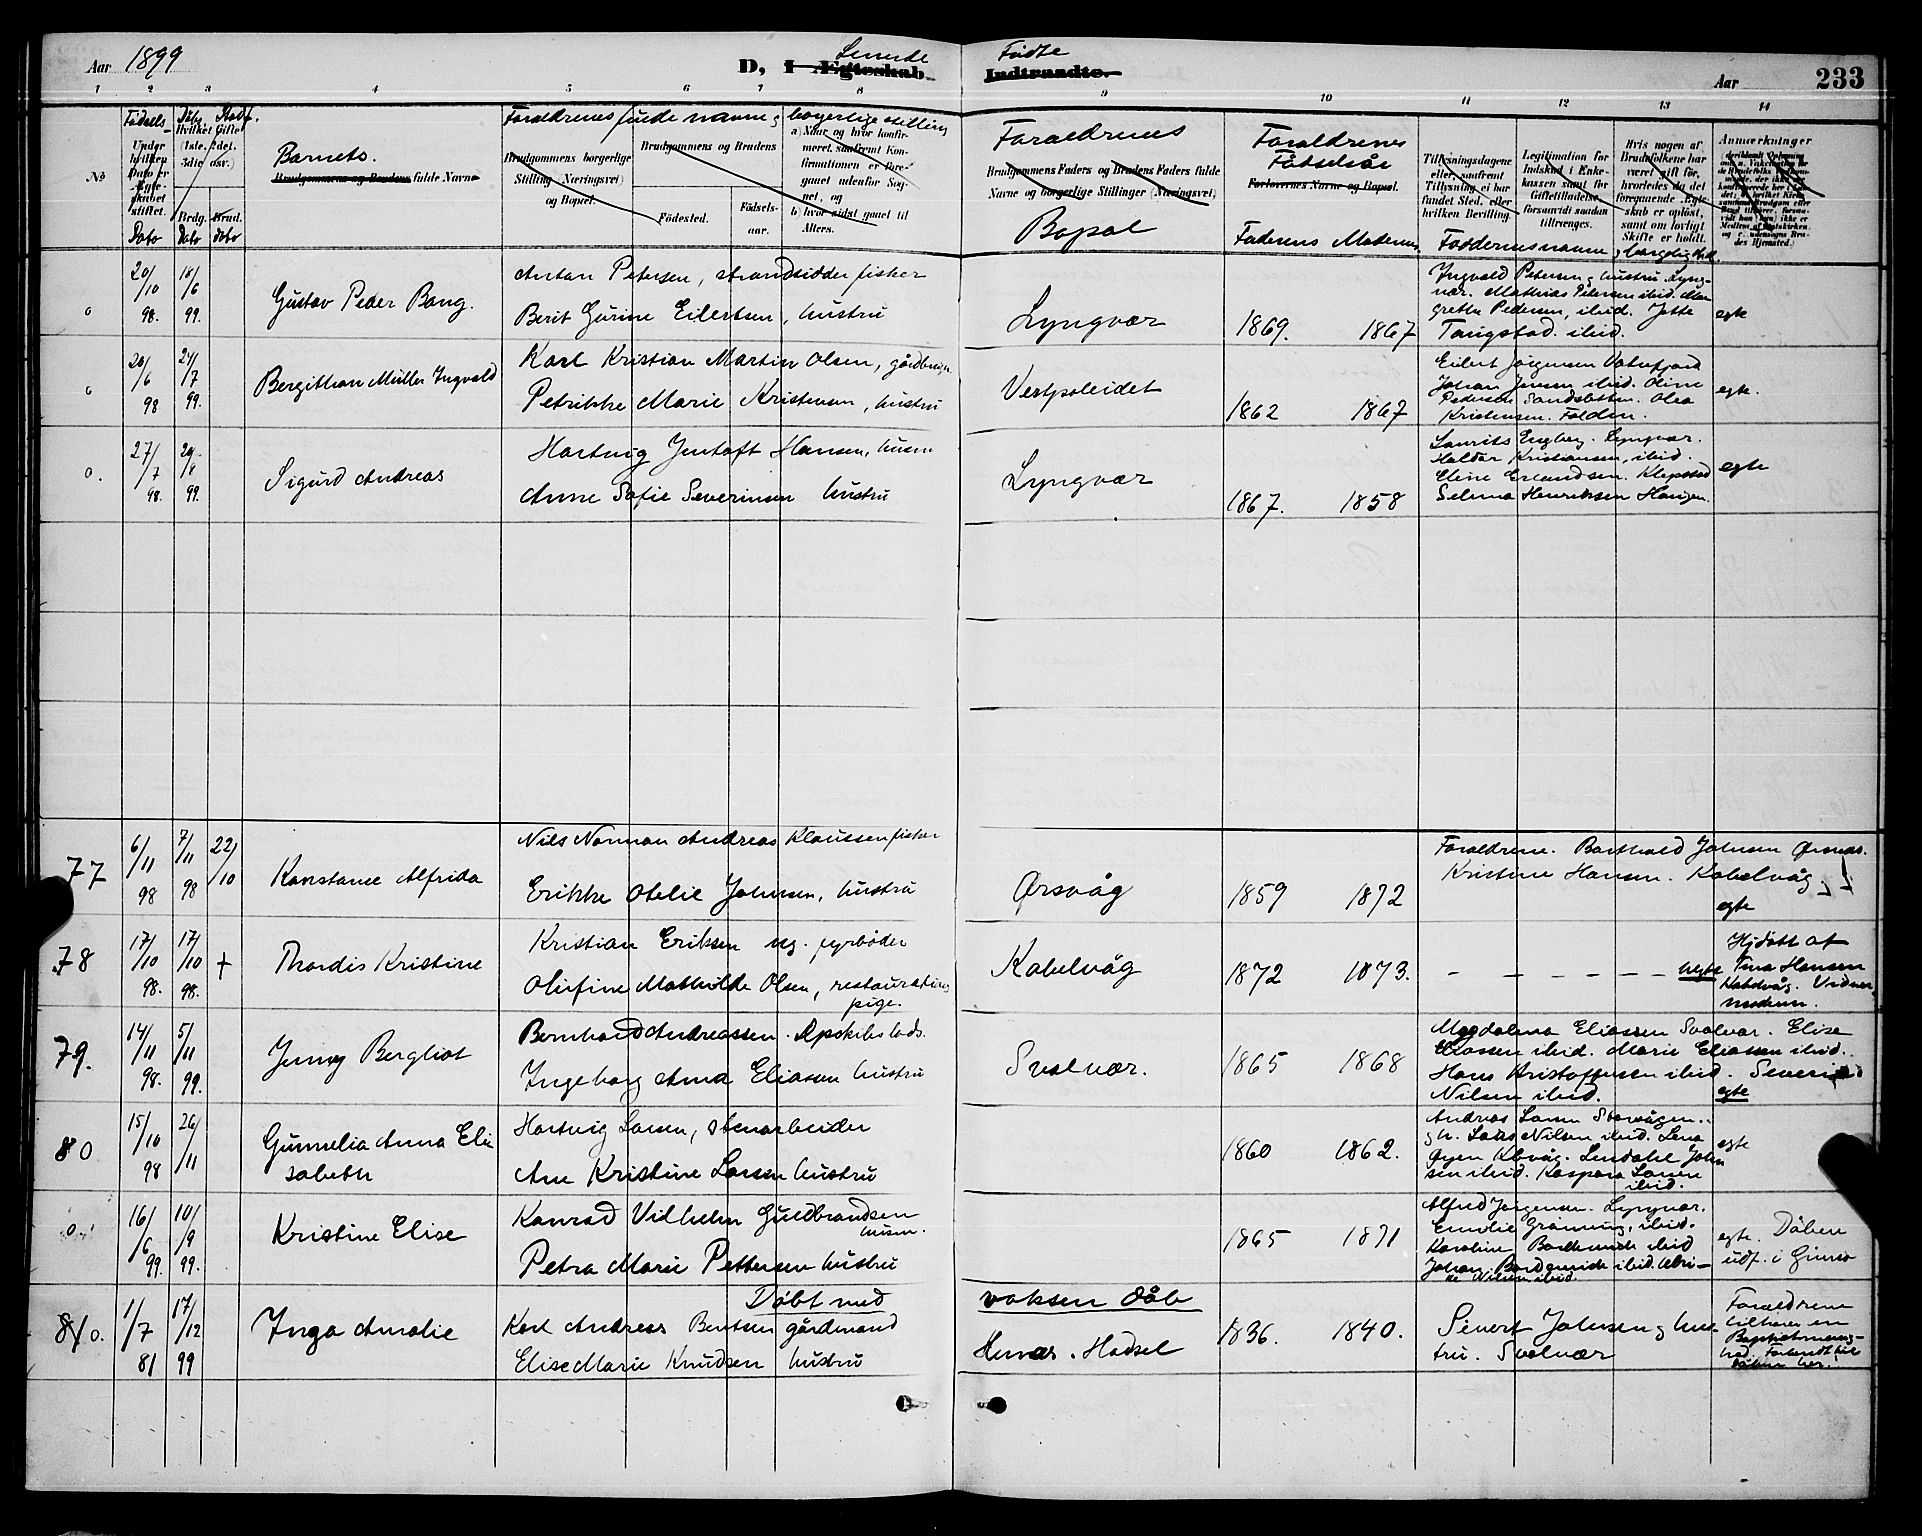 Aar 1899
D, I Ægteskab. Lemede
Fødte Indtraadte.
Aar 233
1 2 3 4 5 6 7 8 9 10 11 12 13 14
No
Fødsels-
Under hvilken Dato er Ægteskabet stiftet.
Dato
Døbt Stadf.
Hvilket Gifte (1ste, 2det, 3die osv.)
Brdg. Brud.
Dato dato
Barnets.
Brudgommens og Brudens fulde Navne
Forældrenes fulde navne, borgerlige stilling
Brudgommens borgerlige Stilling (Næringsvei) og Bopæl.
Brudgommens og Brudens
Fødested.
Fødsels-aar.
a) Naar og hvor konfirmeret, saafremt Konfirmationen er foregaaet udenfor Sognet, og
b) hvor sidst gaaet til Alters.
Forældrenes
Brudgommens Faders og Brudens Faders fulde Navne og borgerlige Stillinger (Næringsvei)
Bopæl
Forældrenes Fødselsår
Forlovernes Navne og Bopæl.
Faderens Moderens
Tillysningsdagene eller, saafremt Tillysning ei har fundet Sted, efter hvilken Bevilling.
Legitimation for Indskud i Enkekassen samt for Giftetilladelse, forsaavidt saadan tiltrænges.
Hvis nogen af Brudefolkene har været gift før, hvorledes da det foregaaende Ægteskab er opløst, samt om lovligt Skifte er holdt.
Anmærkninger
Faddernes navne, borgerlig still.
o 20/10 98. 18/6 99. Gustav Peder Bang.
Anton Petersen, strandsidder fisker
Berit Gurine Eilertsen, hustru
Lyngvær 1869. 1867
Yngvald Petersen, hustru Lyngvær. Mathias Petersen ibid. Mar
grethe Pedersen, ibid. Jette
Tangstad. ibid.
egte
o 20/6 98 24/7 99. Bergithan Müller Ingvald
Karl Kristian Martin Olsen, gårdbruger
Petrikke Marie Kristensen, hustru
Vestpoleidet 1862 1867
Eilert Jørgensen Vatnfjord
Johan Jensen ibid. Oline
Pedersen Sandsletten. Olea
Kristensen. Folden.
egte.
o. 27/7 98. 29/8 99. Sigurd Andreas
Hartvig Jentoft Hansen, husm
Anne Sofie Severinsen hustru
Lyngvær 1867. 1858
Laurits Engberg. Lyngvær.
Haldar Kristiansen, ibid.
Eline Erlandsen. Klepstad
Selma Henriksen Haugen.
egte
77 6/11 98 7/11 98 22/10 Konstance Alfrida
Nils Norman Andreas Klaussen fisker
Erikke Otelie Johnsen, hustru
Ørsvåg 1859 1872
Forældrene. Barthold Johnsen Ørsnes.
Kristine Hansen. Kabelvåg.
egte
78 17/10 98. 17/10 98. + Thordis Kristine
Kristian Eriksen ug. fyrbøder
Olufine Mathilde Olsen, restaurations
pige.
Kabelvåg 1872 1873.
– – – – – – uegte
Hjdøbt af
Tina Hansen
Kabelvåg. Vidner
moderen.
79. 14/11 98. 5/11 99. Jenny Bergliot
Bernhard Andreassen. Opskibslods.
Ingeborg Anna Eliasen hustru
Svolvær. 1865 1868
Magdalena Eliassen Svolvær. Elise
Eliassen ibid. Marie Eliassen ibid.
Hans Kristoffersen ibid. Severin
Nilsen ibid.
egte
80 15/10 98 26/11 Gunnelia Anna Eli
sabeth
Hartvig Larsen, stenarbeider
Ane Kristine Larsen hustru
1860 1862.
Andreas Larsen Storvågen.
g h. Lars Nilsen ibid. Lena
Øyen Kbvåg. Lendahl John
sen ibid. Kaspara Larsen
ibid.
egte
o. 16/6 99. 10/9 99. Kristine Elise
Konrad Vilhelm Guldbrandsen
husm.
Petra Marie Pettersen hustru
1865 1871
Alfred Jørgensen. Lyngvær.
Emilie Grønning, ibid.
Karoline ibid
Johan ibid.
Nilsen ibid.
egte. Dåben
udf. i Gimsø
81 o. 1/7 81 17/12 99 Inga Amalie
Døbt ved
voksen dåb
Karl Andreas Bentsen gårdmand
Elise Marie Knudsen hustru
Hadsel 1836. 1840.
Sivert Johnsen g hus
tru. Svolvær
Forældrene
tilhører en
Baptistmenig-
hed.